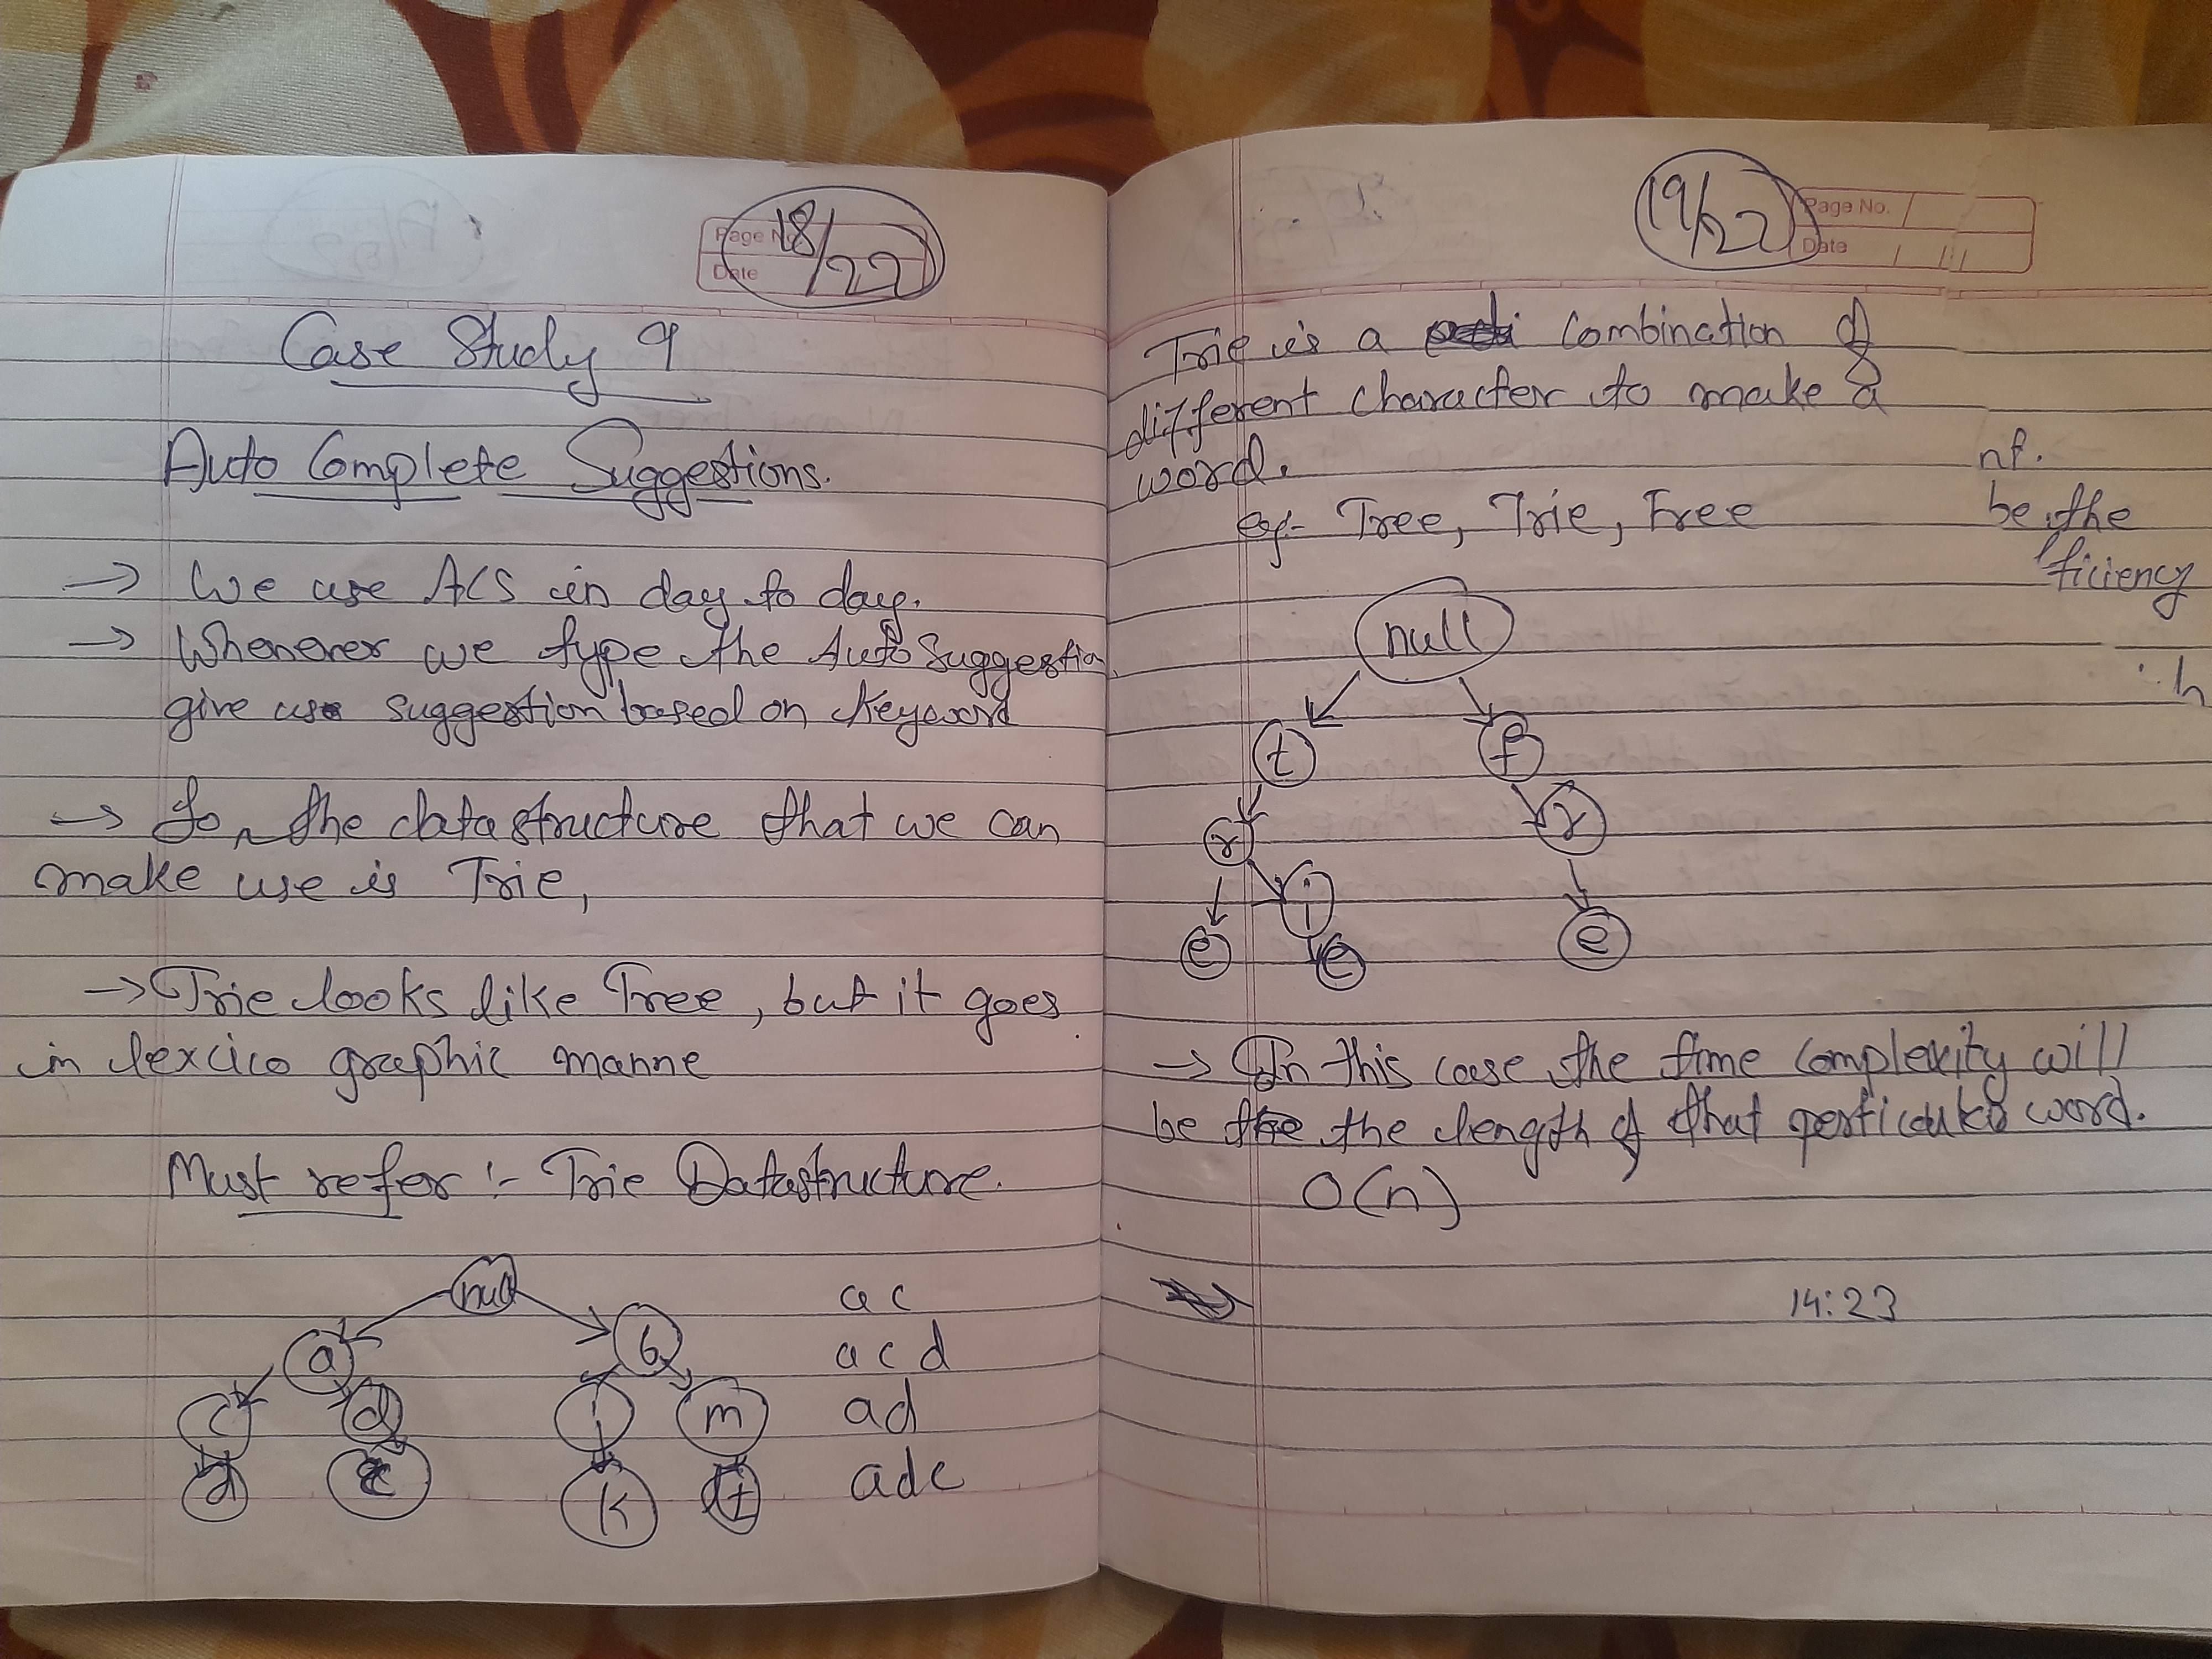 18/22
Page No.
Date
Case Study 9
Auto Complete Suggestions.
→ We use ACS in day to day.
→ Whenever we type the Auto Suggestion
give use suggestion based on keyword
→ So, the datastructure that we can
make use is Trie,
→ Trie looks like Tree, but it goes
in lexico graphic manne
Must refer :- Trie Datastructure.
null
a b
c d i m
d e k t
ac
acd
ad
ade
19/22
Page No.
Date
Trie is a combination of
different character to make a
word.
eg:- Tree, Trie, Free
null
t f
r r
e i e
e
→ In this case the time complexity will
be the the length of that perticular word.
O(n)
14:23
be the
fficiency